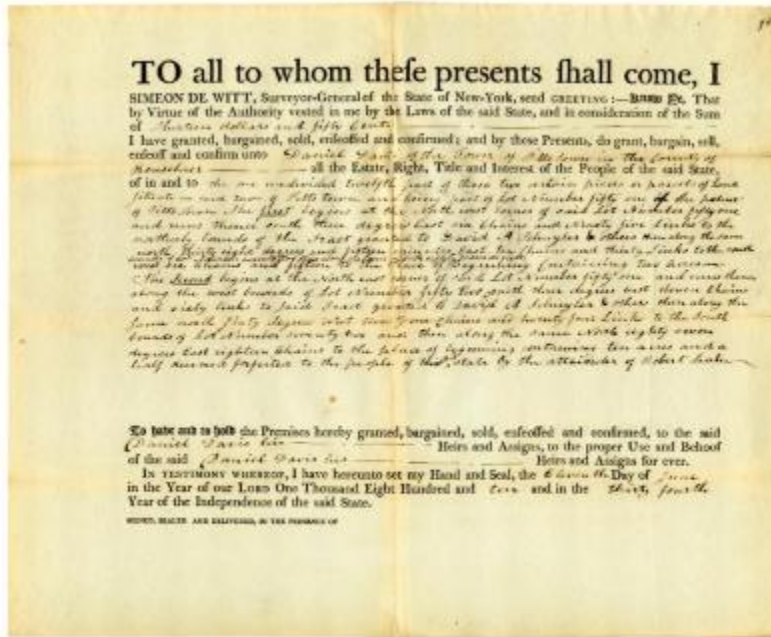 TO all to whom theſe presents ſhall come, I
SIMEON DE WITT, Surveyor-General of the State of New-York, send GREETING:—Know Ye, That
by Virtue of the Authority vested in me by the Laws of the said State, and in consideration of the Sum
of Thirteen dollars and fifty Cents
I have granted, bargained, sold, enfeoffed and confirmed; and by these Presents, do grant, bargain, sell,
enfeoff and confirm unto Daniel Davis of the Town of Pittstown in the County of
Rensselaer all the Estate, Right, Title and Interest of the People of the said State,
of in and to the one undivided twelfth part of those two certain pieces or parcels of Land
situate in town of Pittstown and being part of Lot Number fifty one of the patent
of Pittstown The first begins at the North west corner of said Lot Number fifty one
and runs thence south three degrees East six Chains and Ninety five Links to the
northerly bounds of the Tract granted to David A Schuyler & others then along the same
north thirty eight degrees and fifteen minutes East ten Chains and thirty Links to the south
west six Chains and fifteen to the place of Beginning Containing two acres
The Second begins at the North east corner of said Lot Number fifty one and runs thence
along the west bounds of Lot Number fifty two south three degrees east eleven Chains
and sixty links to said Tract granted to David A Schuyler & others then along the
same north sixty degrees West Chains and twenty four Links to the South
bounds of Lot Number twenty two and then along the same North eighty seven
degrees East eighteen Chains to the place of beginning containing ten acres and a
half deemed forfeited to the people of this state by the attainder of Robert
To have and to hold the Premises hereby granted, bargained, sold, enfeoffed and confirmed, to the said
Daniel Davis his Heirs and Assigns, to the proper Use and Behoof
of the said Daniel Davis his Heirs and Assigns for ever.
IN TESTIMONY WHEREOF, I have hereunto set my Hand and Seal, the Eleventh Day of June
in the Year of our LORD One Thousand Eight Hundred and ten and in the thirty fourth
Year of the Independence of the said State.
SIGNED, SEALED AND DELIVERED, IN THE PRESENCE OF